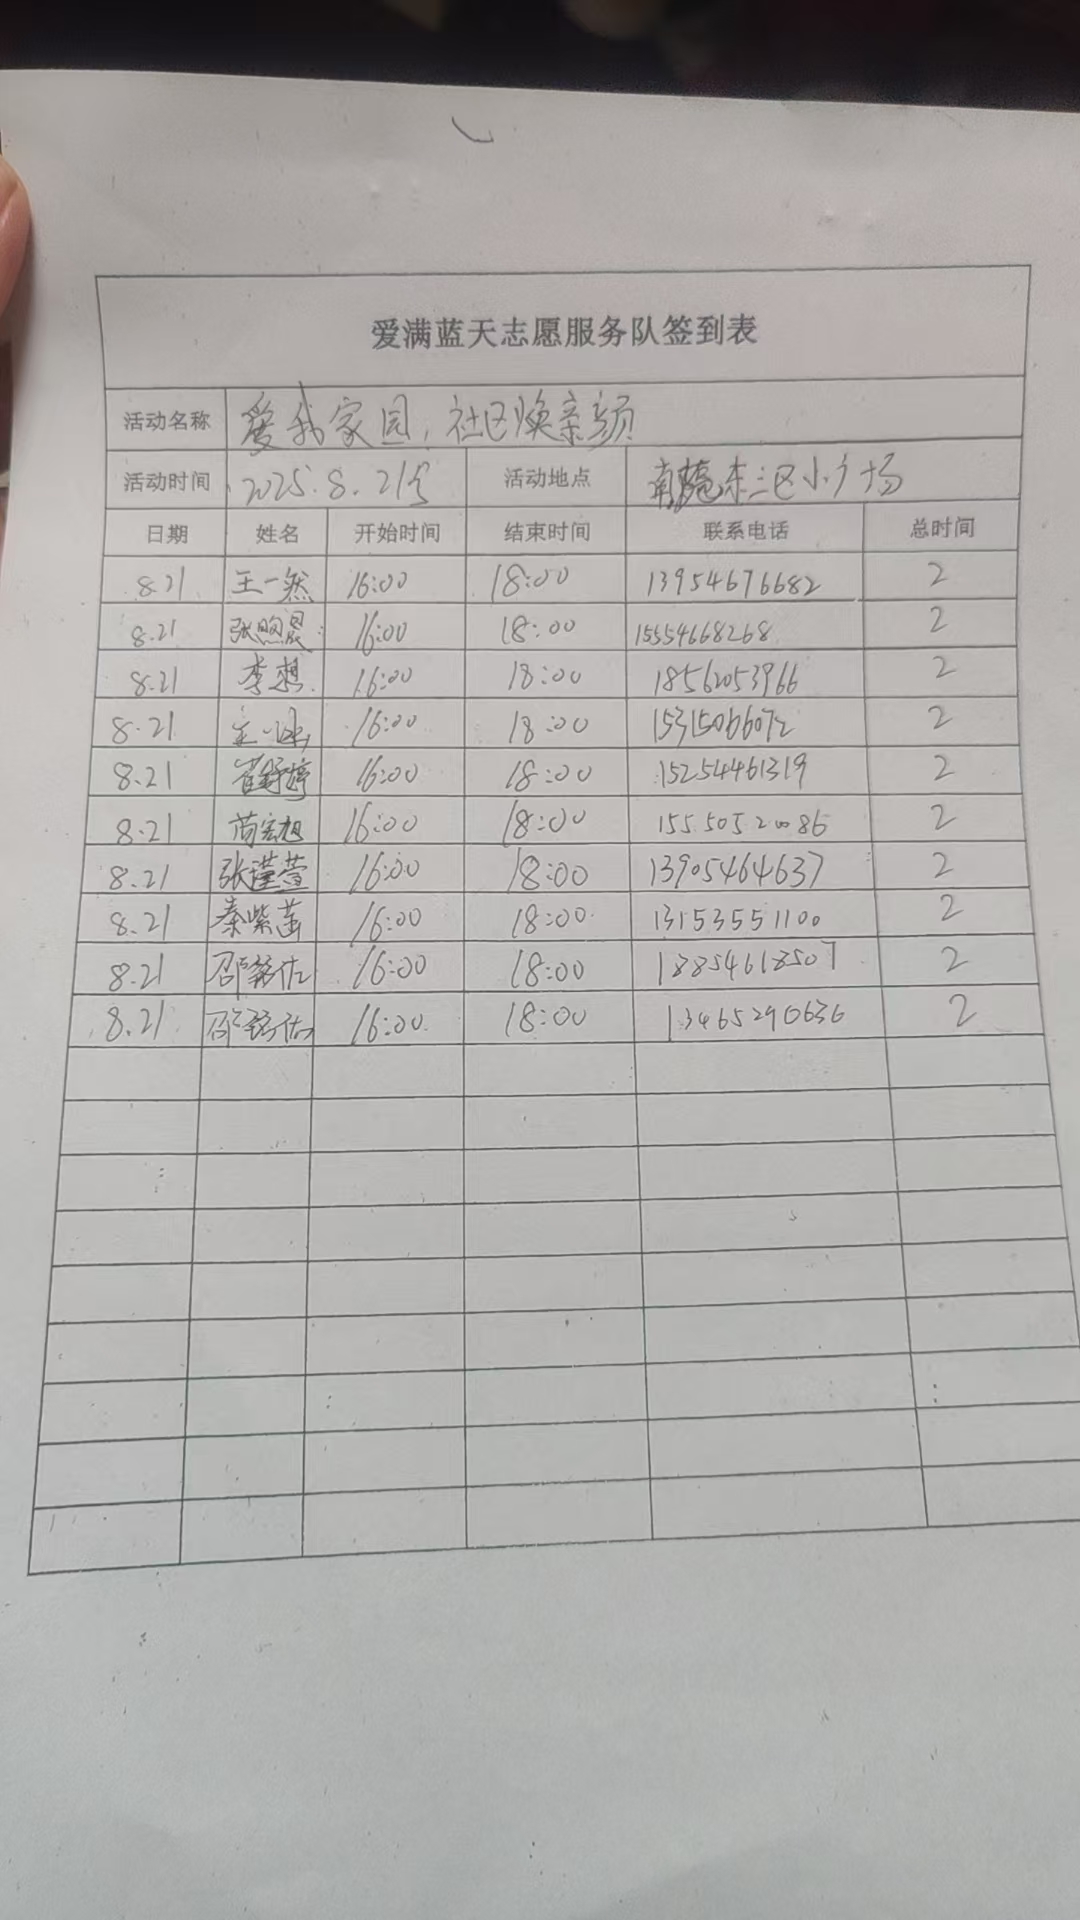 爱满蓝天志愿服务队签到表
活动名称 爱我家园，社区焕亲颜
活动时间 2025.8.21号 活动地点 南苑东三区小广场
日期 姓名 开始时间 结束时间 联系电话 总时间
8.21 王一然 16:00 18:00 13954676682 2
8.21 张煦晟 16:00 18:00 15554668268 2
8.21 李想 16:00 18:00 18562053966 2
8.21 16:00 18:00 15315066072 2
8.21 崔舒婷 16:00 18:00 15254461319 2
8.21 苘宏旭 16:00 18:00 15550520086 2
8.21 张瑾萱 16:00 18:00 13905464637 2
8.21 秦紫茜 16:00 18:00 13153551100 2
8.21 邵铭佐 16:00 18:00 18854618507 2
8.21 邵铭佑 16:00 18:00 13465290636 2